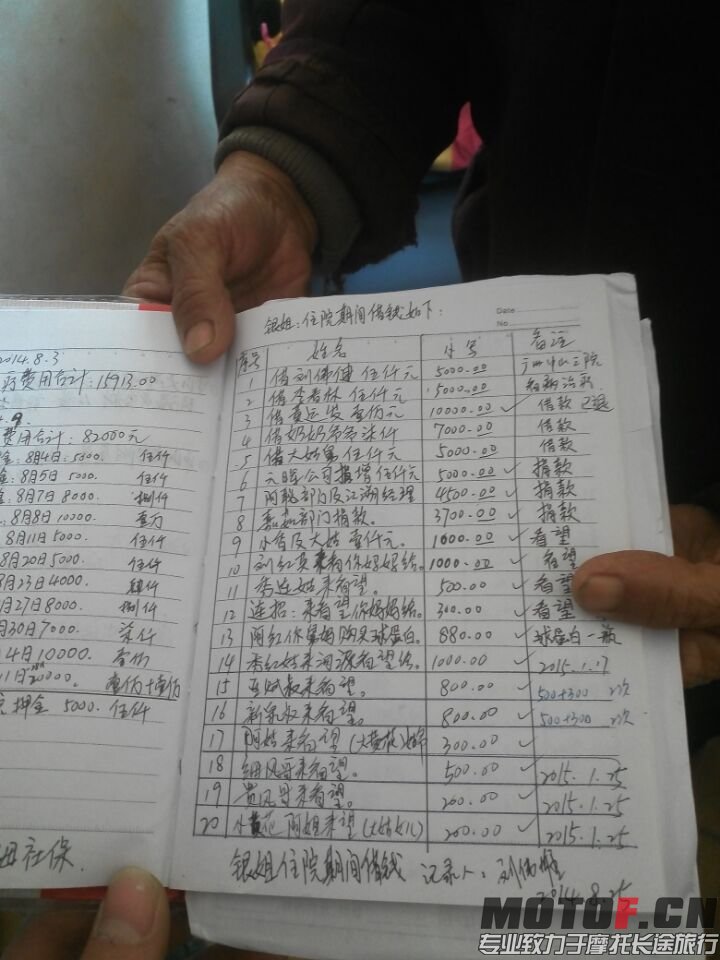 2014.8.3
疗费用合计:15913.00
费用合计: 82000元
金: 8月4日: 5000. 伍仟
金: 8月5日 5000. 伍仟
金: 8月7日 8000. 捌仟
8月8日 10000. 壹万
8月11日 5000. 伍仟
8月20日 5000. 伍仟
8月23日 4000. 肆仟
月27日 8000. 捌仟
月30日 7000. 柒仟
4日 10000.
11日 20000.
押金 5000. 伍仟
社保.
银姐:住院期间借钱如下:
Date
No
序号 姓名 小写 备注
1 借刘佛健 伍仟元 5000.00 广州中山三院
2 借李春林 伍仟元 5000.00
3 借黄运发 壹万元 10000.00 ✓ 借款 已还
4 借奶奶 柒仟 7000.00 借款
5 借大姑 伍仟元 5000.00 借款
6 公司捐增 伍仟元 5000.00 ✓ 捐款
7 部门及江湖经理 4500.00 ✓ 捐款
8 部门捐款. 3700.00 ✓ 捐款
9 小香及大姑 壹仟元. 1000.00 ✓ 看望
10 刘红英来看你妈妈给. 1000.00 ✓ 看望
11 秀连姑来看望. 500.00 ✓ 看望
12 连招:来看望你妈妈给. 300.00 ✓ 看望
13 阿红你舅妈购买球蛋白. 880.00 ✓ 球蛋白一瓶
14 秀红姑来河源看望给. 1000.00 ✓ 2015.1.17
15 叔来看望. 800.00 ✓ 500+300 2次
16 叔来看望. 800.00 ✓ 500+300 2次
17 阿姑来看望(大黄花) 300.00 ✓
18 细凤哥来看望. 500.00 ✓ 2015.1.25
19 贵凤哥来看望. 200.00 ✓ 2015.1.25
20 小黄花阿姐来望(大姑女儿) 200.00 ✓ 2015.1.25
银姐住院期间借钱 记录人: 刘
2014.8.25
MOTOF.CN
专业致力于摩托长途旅行